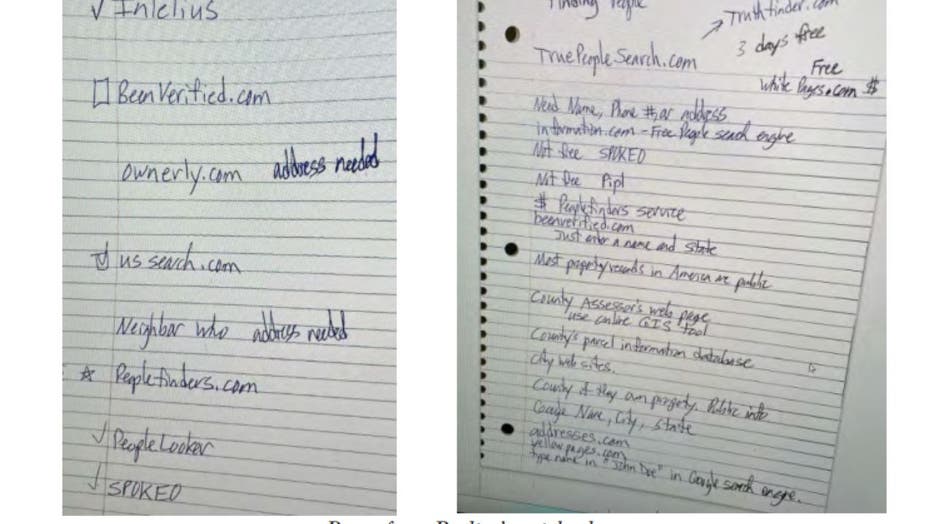 ✓ Intelius
BeenVerified.com
ownerly.com address needed
us search.com
Neighbor who address needed
☆ Peoplefinders.com
✓ PeopleLooker
✓ SPOKEO
Finding People
Truthfinder.com
3 days free
TruePeopleSearch.com
Free
White Pages.com $
Need Name, Phone #, or address
information.com - Free People search engine
Not free SPOKEO
Not free Pipl
$ Peoplefinders service
beenverified.com
Just enter a name and state
Most property records in America are public
County Assessor's web page
use online GIS tool
County's parcel information database
city web sites.
County if they own property. Public info
Google Name, City, State
addresses.com
yellowpages.com
type name in "John Doe" in Google search engine.